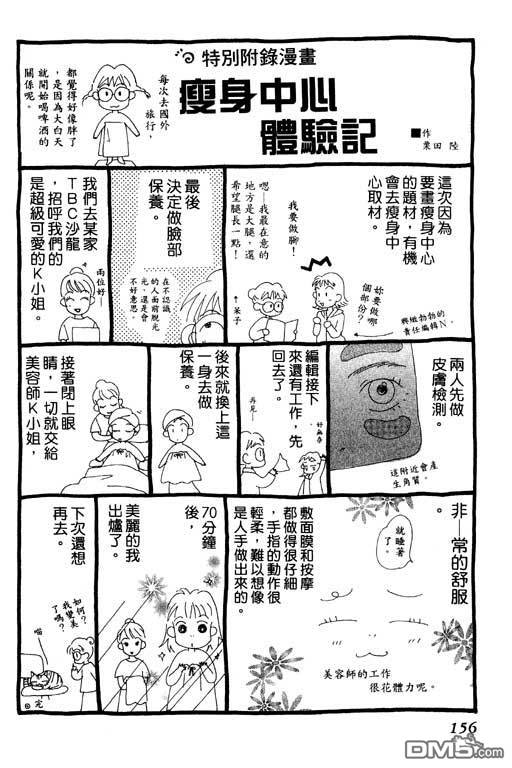 特別附錄漫畫
瘦身中心
體驗記
■作
栗田 陸
每次去國外
旅行，
都覺得好像胖了
，是因為大白天
就開始喝啤酒的
關係呢。
這次因為
要畫瘦身中心
的題材，有機
會去瘦身中
心取材。
興緻勃勃的
責任編輯N。
妳要做哪
個部份？
我要做腳！
嗯—我最在意的
地方是大腿，還
希望腿長一點！
最後
決定做臉部
保養。
在不認識
的人面前脫光
光，還是會
不好意思。
我們去某家
TBC沙龍
，招呼我們的
是超級可愛的K小姐。
兩位好—
兩人先做
皮膚檢測。
這附近會產
生角質。
編輯接下
來還有工作，先
回去了。
再見—
後來就換上這
一身去做
保養。
接著閉上眼
睛，一切就交給
美容師K小姐，
非—常的舒服
。
就睡著
了。
美容師的工作
很花體力呢。
敷面膜和按摩
都做得很仔細
，手指的動作很
輕柔，難以想像
是人手做出來的。
70分鐘
後，
美麗的我
出爐了。
下次還想
再去。
如何？
我變美
了嗎？
喵
完
156
DM5.com